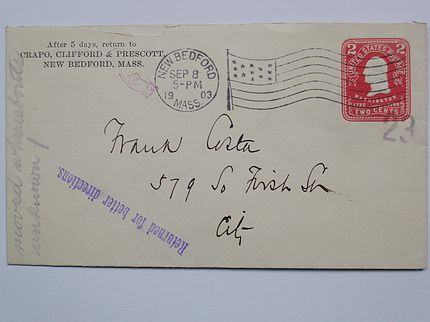 After 5 days, return to
CRAPO, CLIFFORD & PRESCOTT,
NEW BEDFORD, MASS.
NEW BEDFORD
SEP 8
5-PM
1903
MASS.
2 2
UNITED STATES POSTAGE
WASHINGTON
1732 1799
TWO CENTS
23
Frank Costa
579 So First St
City
Returned for better directions.
moved whereabouts
unknown